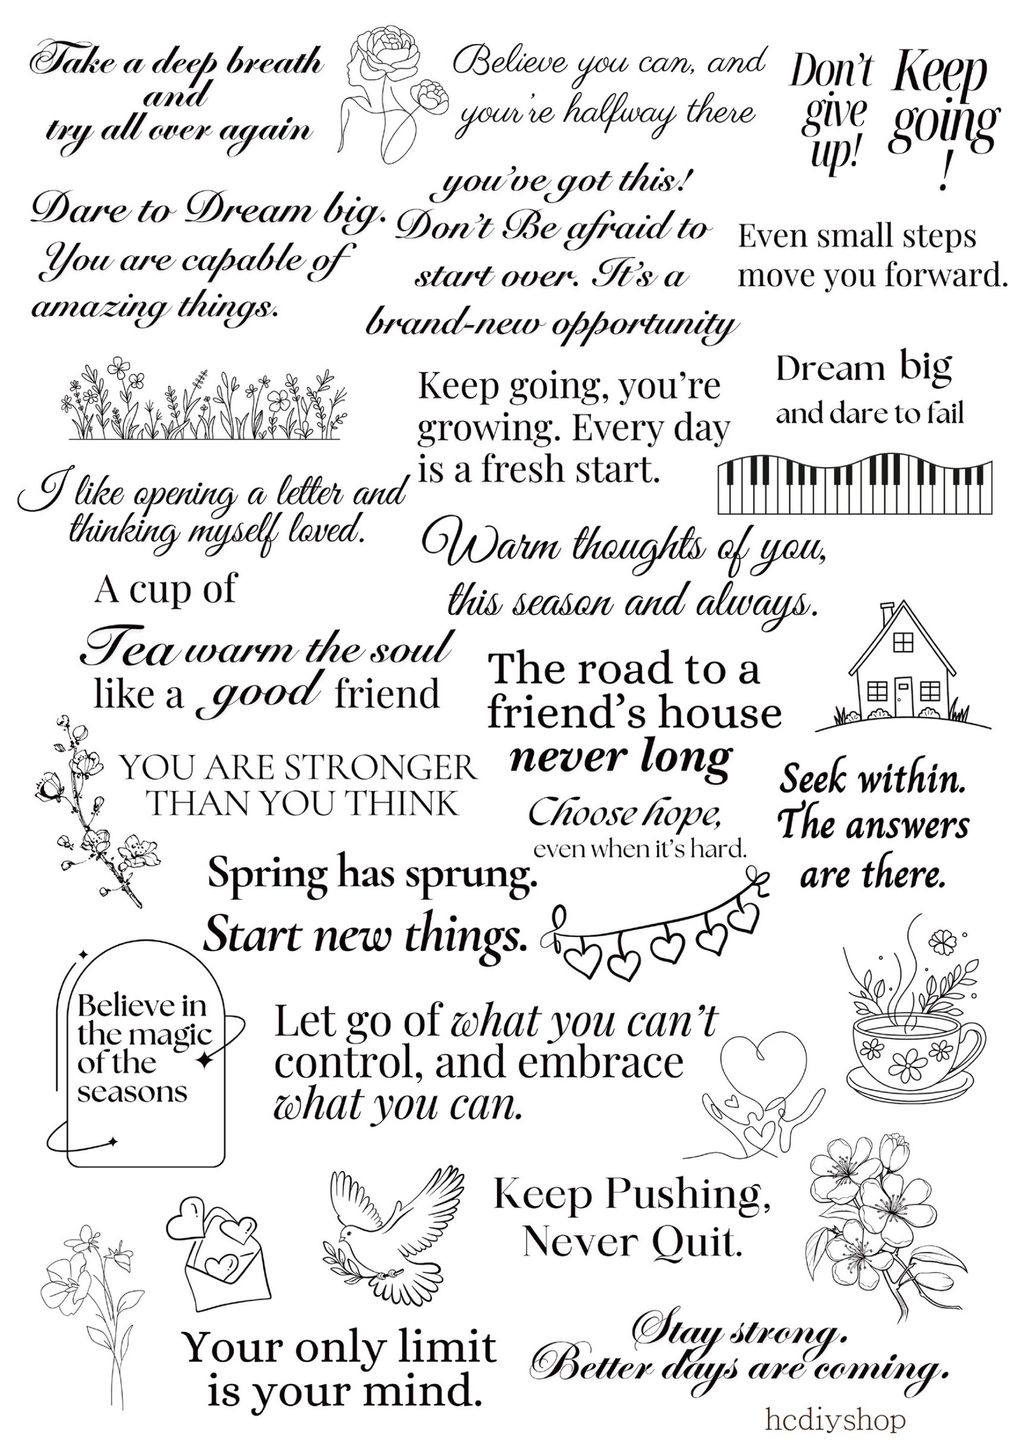 Take a deep breath
and
try all over again
Believe you can, and
your're halfway there
Don't
give
up!
Keep
going
!
Dare to Dream big.
You are capable of
amazing things.
you've got this!
Don't Be afraid to
start over. It's a
brand-new opportunity
Even small steps
move you forward.
Keep going, you're
growing. Every day
is a fresh start.
Dream big
and dare to fail
I like opening a letter and
thinking myself loved.
Warm thoughts of you,
this season and always.
A cup of
Tea warm the soul
like a good friend
The road to a
friend's house
never long
YOU ARE STRONGER
THAN YOU THINK
Choose hope,
even when it's hard.
Seek within.
The answers
are there.
Spring has sprung.
Start new things.
Believe in
the magic
of the
seasons
Let go of what you can't
control, and embrace
what you can.
Keep Pushing,
Never Quit.
Your only limit
is your mind.
Stay strong.
Better days are coming.
hcdiyshop